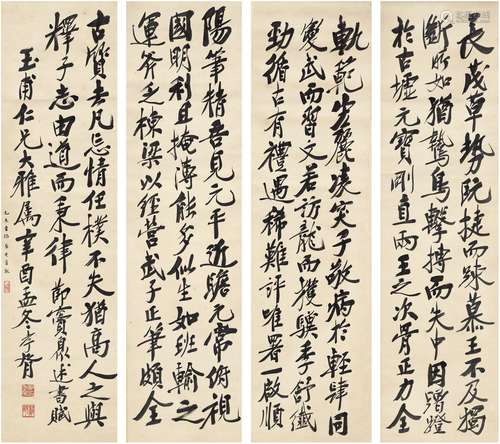 長茂草勢阮捷而疎慕王不及獨
斷所如猶鷙鳥擊搏而失中因蹭蹬
於古墟元寶剛直兩王之次骨正力全
軌範宏麗淩突子敬病於輕肆同
變武而習文若訪龍而獲驥季舒纖
勁循古有禮遇稀難評唯署一啟順
陽筆精吾見元平近瞻元常俯視
國明利且掩薄能多似生如班輸之
運斧乏棟梁以經營武子正筆頗全
古質去凡忘情任樸不失猶高人之與
釋子志由道而秉律 節竇臮述書賦
玉甫仁兄大雅屬辛酉孟冬李